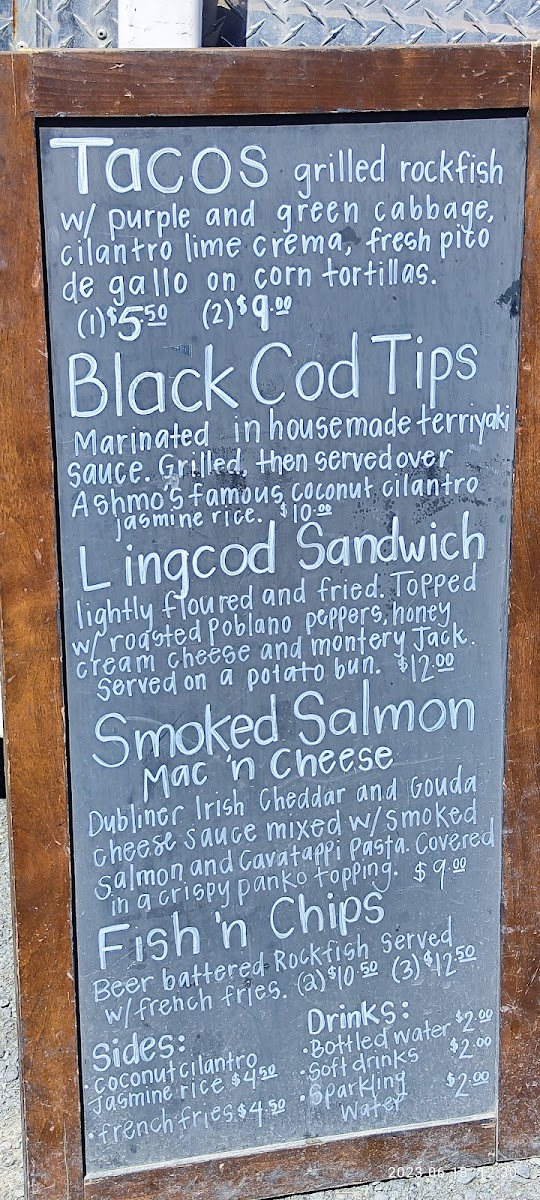 Tacos grilled rockfish
w/ purple and green cabbage,
cilantro lime crema, fresh pico
de gallo on corn tortillas.
(1) $5.50 (2) $9.00
Black Cod Tips
Marinated in housemade terriyaki
sauce. Grilled, then served over
Ashmo's famous coconut cilantro
jasmine rice. $10.00
Lingcod Sandwich
lightly floured and fried. Topped
w/ roasted poblano peppers, honey
cream cheese and montery Jack.
Served on a potato bun. $12.00
Smoked Salmon
Mac 'n Cheese
Dubliner Irish Cheddar and Gouda
cheese sauce mixed w/ smoked
Salmon and Cavatappi Pasta. Covered
in a crispy panko topping. $9.00
Fish 'n Chips
Beer battered Rockfish served
w/ french fries. (2) $10.50 (3) $12.50
Sides:
• Coconut cilantro
Jasmine rice $4.50
• french fries $4.50
Drinks:
• Bottled water $2.00
• Soft drinks $2.00
• Sparkling
Water $2.00